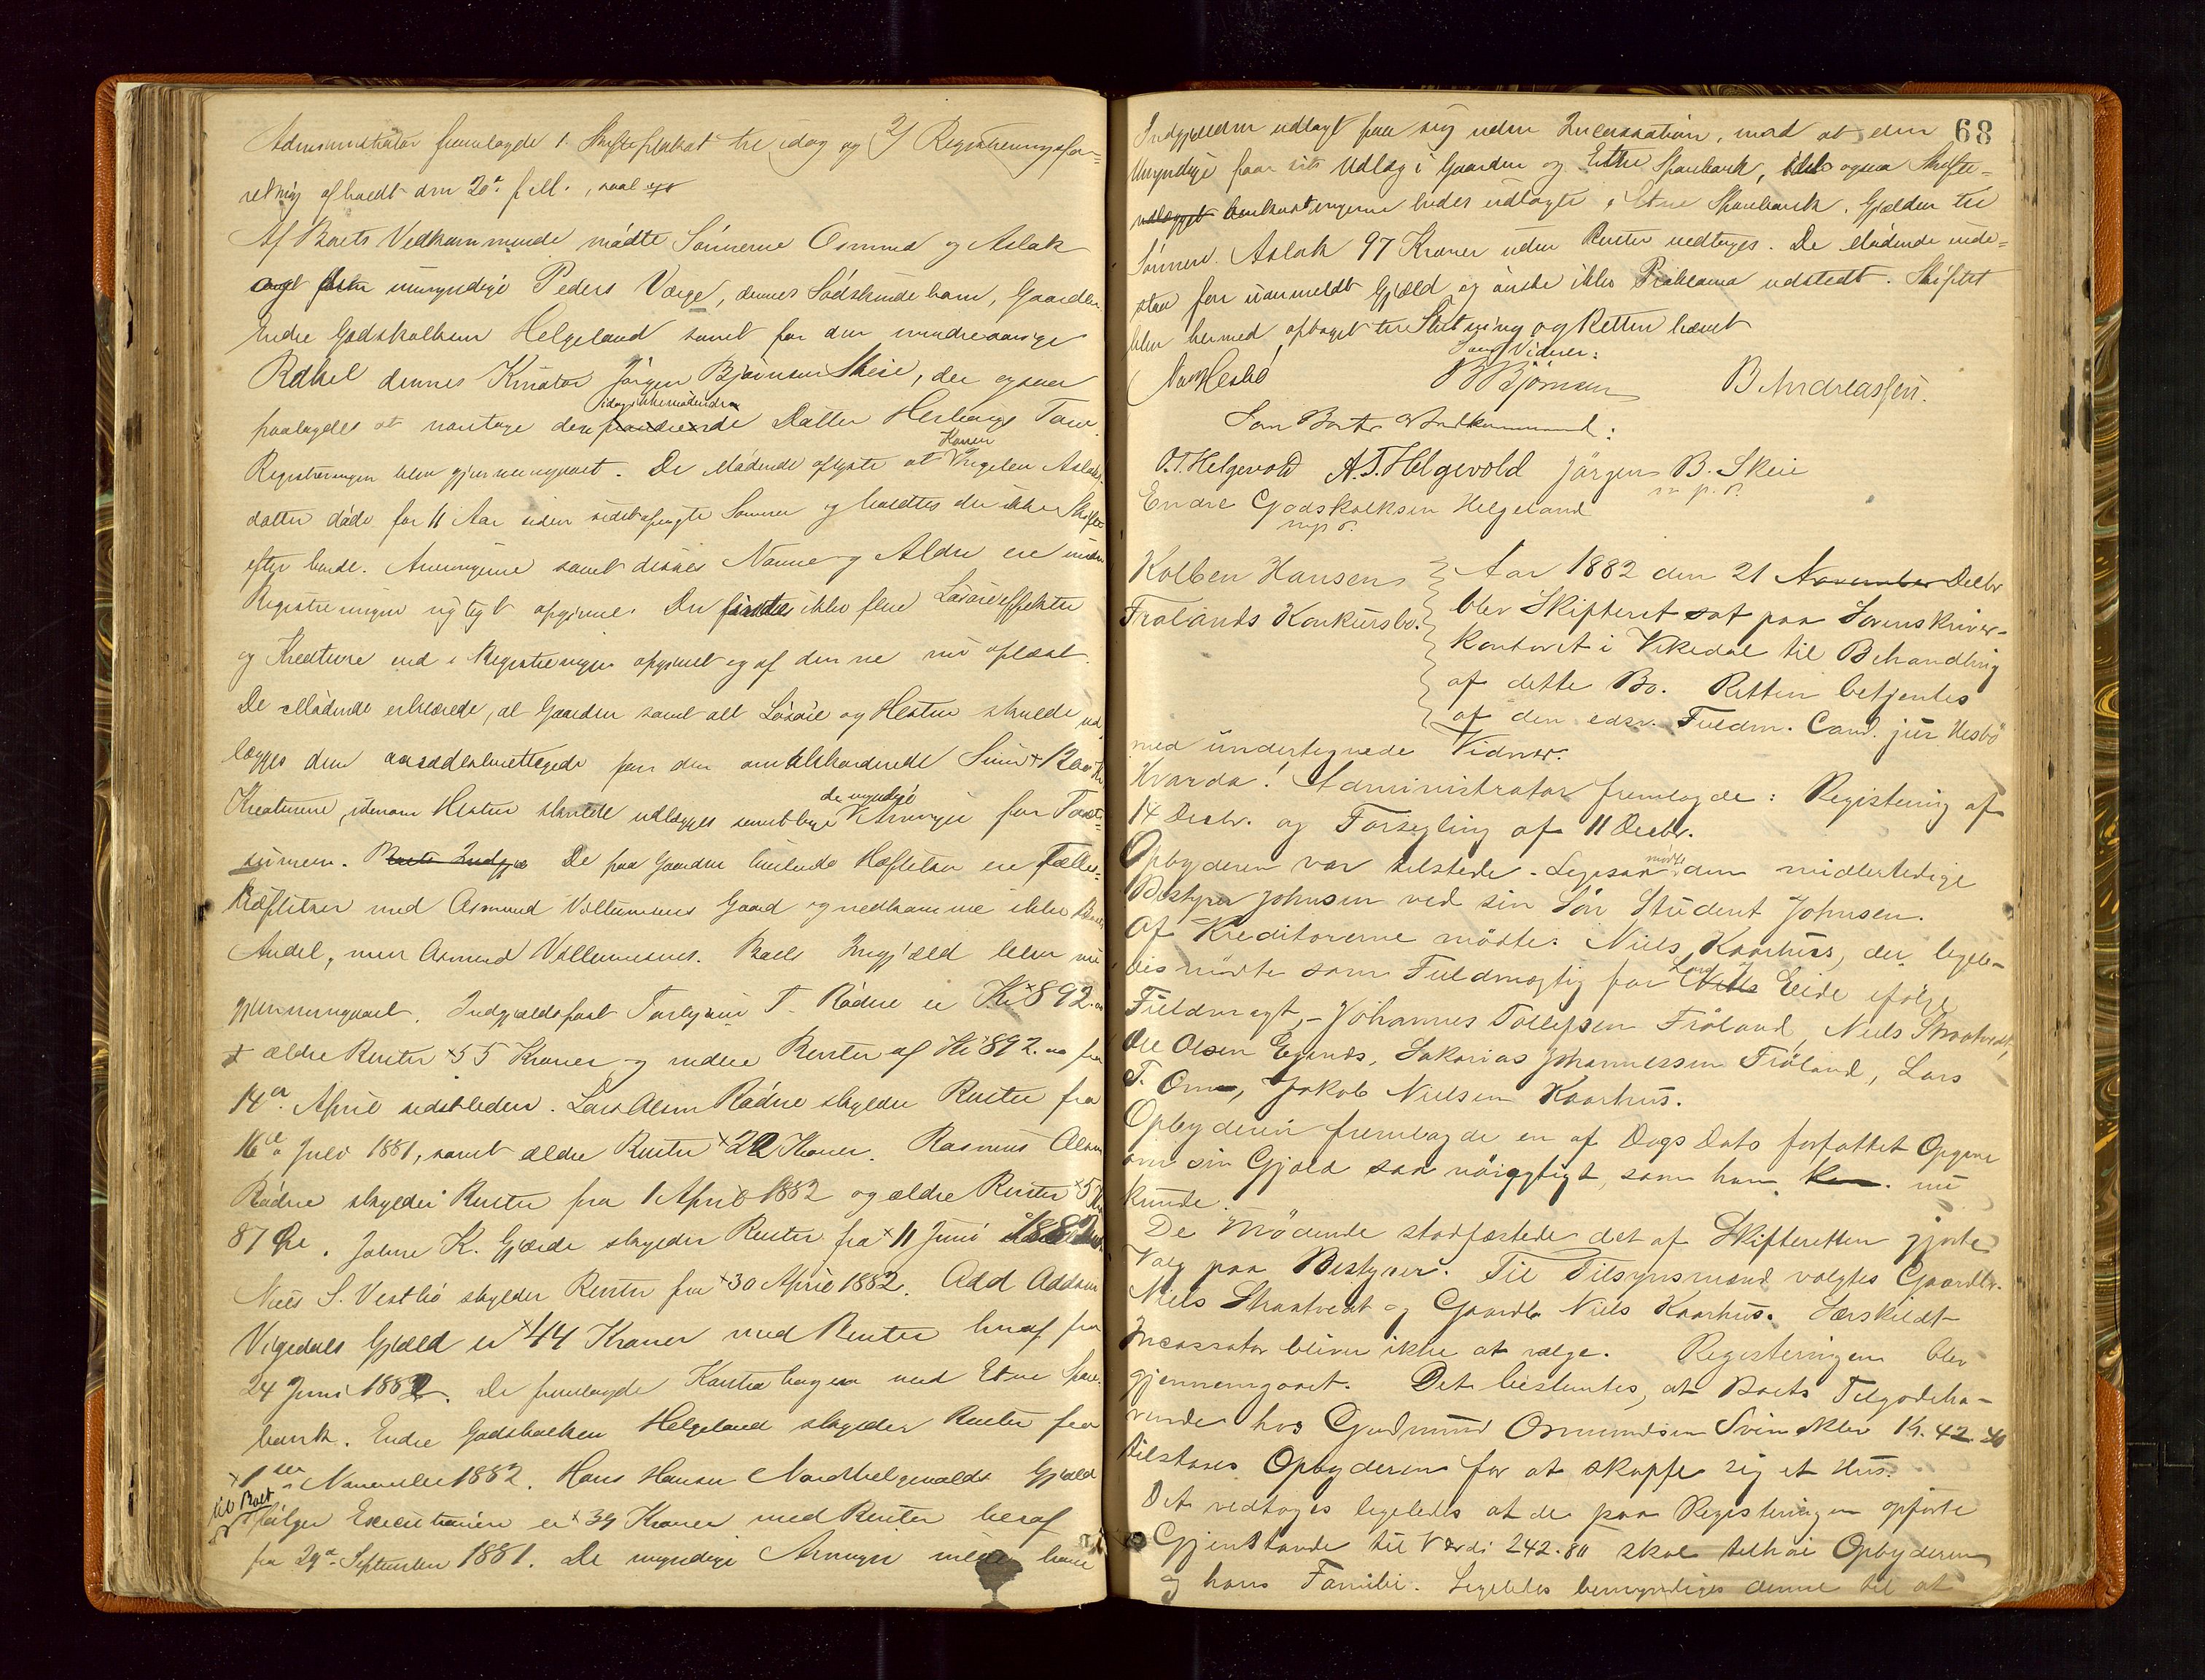 Administrator fremlagde 1. Skifteplakat til idag og 2/ Registreringsfor-
retning afholdt den 20de f.M.,
Af Boets Vedkommende mødte Sønnerne Osmund og Aslak
umyndige Peders Værge, dennes Sødskindebarn, Gaardbr
Endre Godskalksen Helgeland samt for den mindreaarige
Rakel dennes Kurator Jørgen Bjørnsen Skeie, der ogsaa
idag ikkemødende
paalagdes at varetage den Datter Herborgs Tarv.
Konen
Registreringen blev gjennemgaaet. De Mødende oplyste at Aslaks-
datter døde for 11 Aar siden sidstafvigte Sommer og holdtes der ikke Skifte
efter hende. Arvingerne samt disses Navne og Alder ere under
Registreringen rigtigt opgivne. Der findes ikke flere Løsøreeffekter
og Kreature end i Registreringen opgivet og af denne nu oplæst.
De Mødende erklærede, at Gaarden samt alt Løsøre og Hesten skulde ud-
lægges den aasædesberettigede for den omhandlede Sum 1200 Kr
de myndige
Kreaturene, idenom Hesten skulde udlægges samtlige Arvinger for Taxt-
summen. De paa Gaarden hvilende Hæftelser ere Fælles-
Hæftelser med Asmund Vollumnes Gaard og vedkomme ikke Boets
Andel, men Asmund Vollumnes. Boets Indgjæld blev nu
gjennemgaaet. Indgjældspost Torbjørn T. Rødne er Kr 892.00
+ ældre Renter 55 Kroner og videre Renter af Kr 892.00 fra
14de April sidstleden. Lars Olsen Rødne skylder Renter fra
16de Juli 1881, samt ældre Renter 22 Kroner. Rasmus Olsen
Rødne skylder Renter fra 1 April 1882 og ældre Renter 5 Kr
87 Øre. Johne K. Gjærde skylder Renter fra 11 Juni 1882
Niels S. Vestbø skylder Renter fra 30 April 1882. Add Addsen
Vigedals Gjæld er 44 Kroner med Renter heraf fra
24 Juni 1882. De fremlagde Kontrabogen med Etne Spare-
bank. Endre Godskalksen Helgeland skylder Renter fra
1ste November 1882. Hans Hansen Nordhelgevolds Gjæld
til Boet
ifølge Executionen er 39 Kroner med Renter heraf
fra 29de September 1881. De myndige Arvinger ville have
68
Indgjælden udlagt paa sig uden Incassation, mod at den
Umyndige faar sit Udlæg i Gaarden og Etne Sparebank, ogsaa Skifte-
omkostningerne bedes udlagte i Etne Sparebank. Gjælden til
Sønnen Aslak 97 Kroner uden Renter vedtages. De Mødende inde-
staa for uanmeldt Gjæld og ønske ikke Proklama udstedt. Skiftet
blev hermed optaget til Slutning og Retten hævet
Som Vidner:
Hesbø B Bjørnsen B Andreassen.
Som Boets Vedkommende:
O.T. Helgevold A.T. Helgevold Jørgen B. Skeie
m. p. P.
Endre Godskalksen Helgeland
m p P.
Kolben Hansen Aar 1882 den 21 November Decbr
Frølands Konkursbo. blev Skifteret sat paa Sorenskriver-
kontoret i Vikedal til Behandling
af dette Bo. Retten betjentes
af den edsv. Fuldm. Cand. jur Hesbø
med undertegnede Vidner.
Hvorda! Administrator fremlagde: Registering af
14 Decbr. og Forsegling af 11 Decbr.
mødte
Opbyderen var tilstede. Ligesaa den midlertidige
Bestyrer Johnsen ved sin Søn Student Johnsen.
Af Kreditorerne mødte: Niels Kaarhus, der ligele-
Lars
des mødte som Fuldmægtig for Niels Eide ifølge
Fuldmagt, – Johannes Tollefsen Frøland, Niels Straatvedt,
Ole Olsen Espnds, Sakarias Johannessen Frøland, Lars
T. Omn, Jakob Nielsen Kaarhus.
Opbyderen fremlagde en af Dags Dato forfattet Opgave
om sin Gjæld saa nøiagtigt, som han nu
kunde.
De Mødende stadfæstede det af Skifteretten gjorte
Valg paa Bestyrer. Til Tilsynsmænd valgtes Gaardbr.
Niels Straatvedt og Gaardb Niels Kaarhus. Særskildt
Incassator bliver ikke at vælge. Registeringen blev
gjennemgaaet. Det besluttes, at Boets Tilgodeha-
vende hos Gudmund Osmundsen Svin Kr. 42.40
tilstaaes Opbyderen for at skaffe sig et Hus.
Det vedtoges ligeledes at de paa Registeringen opførte
Gjenstande til Værdi 242.80 skal tilhøre Opbyderen
og hans Familie. Ligeledes bemyndiges denne til at